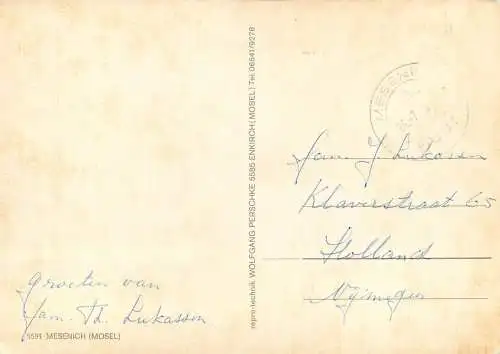 Groeten van
fam. Th. Lukassen
5591 MESENICH (MOSEL)
repro-technik WOLFGANG PERSCHKE 5585 ENKIRCH (MOSEL) Tel. 06541/9278
MESENI
Fam. J. Lukassen
Klaverstraat 65
Holland
Nijmegen